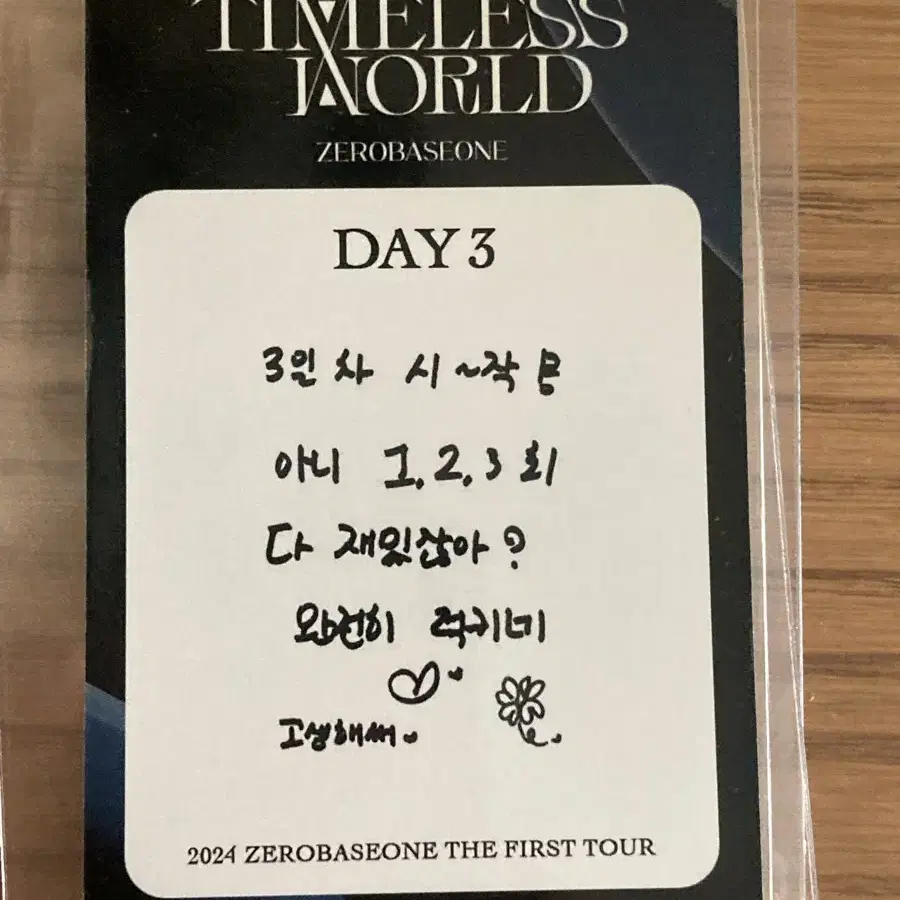 TIMELESS
WORLD
ZEROBASEONE
DAY 3
3일차 시~작
아니 1, 2, 3회
다 재밌잖아?
완전히 럭키네
고생해써
2024 ZEROBASEONE THE FIRST TOUR